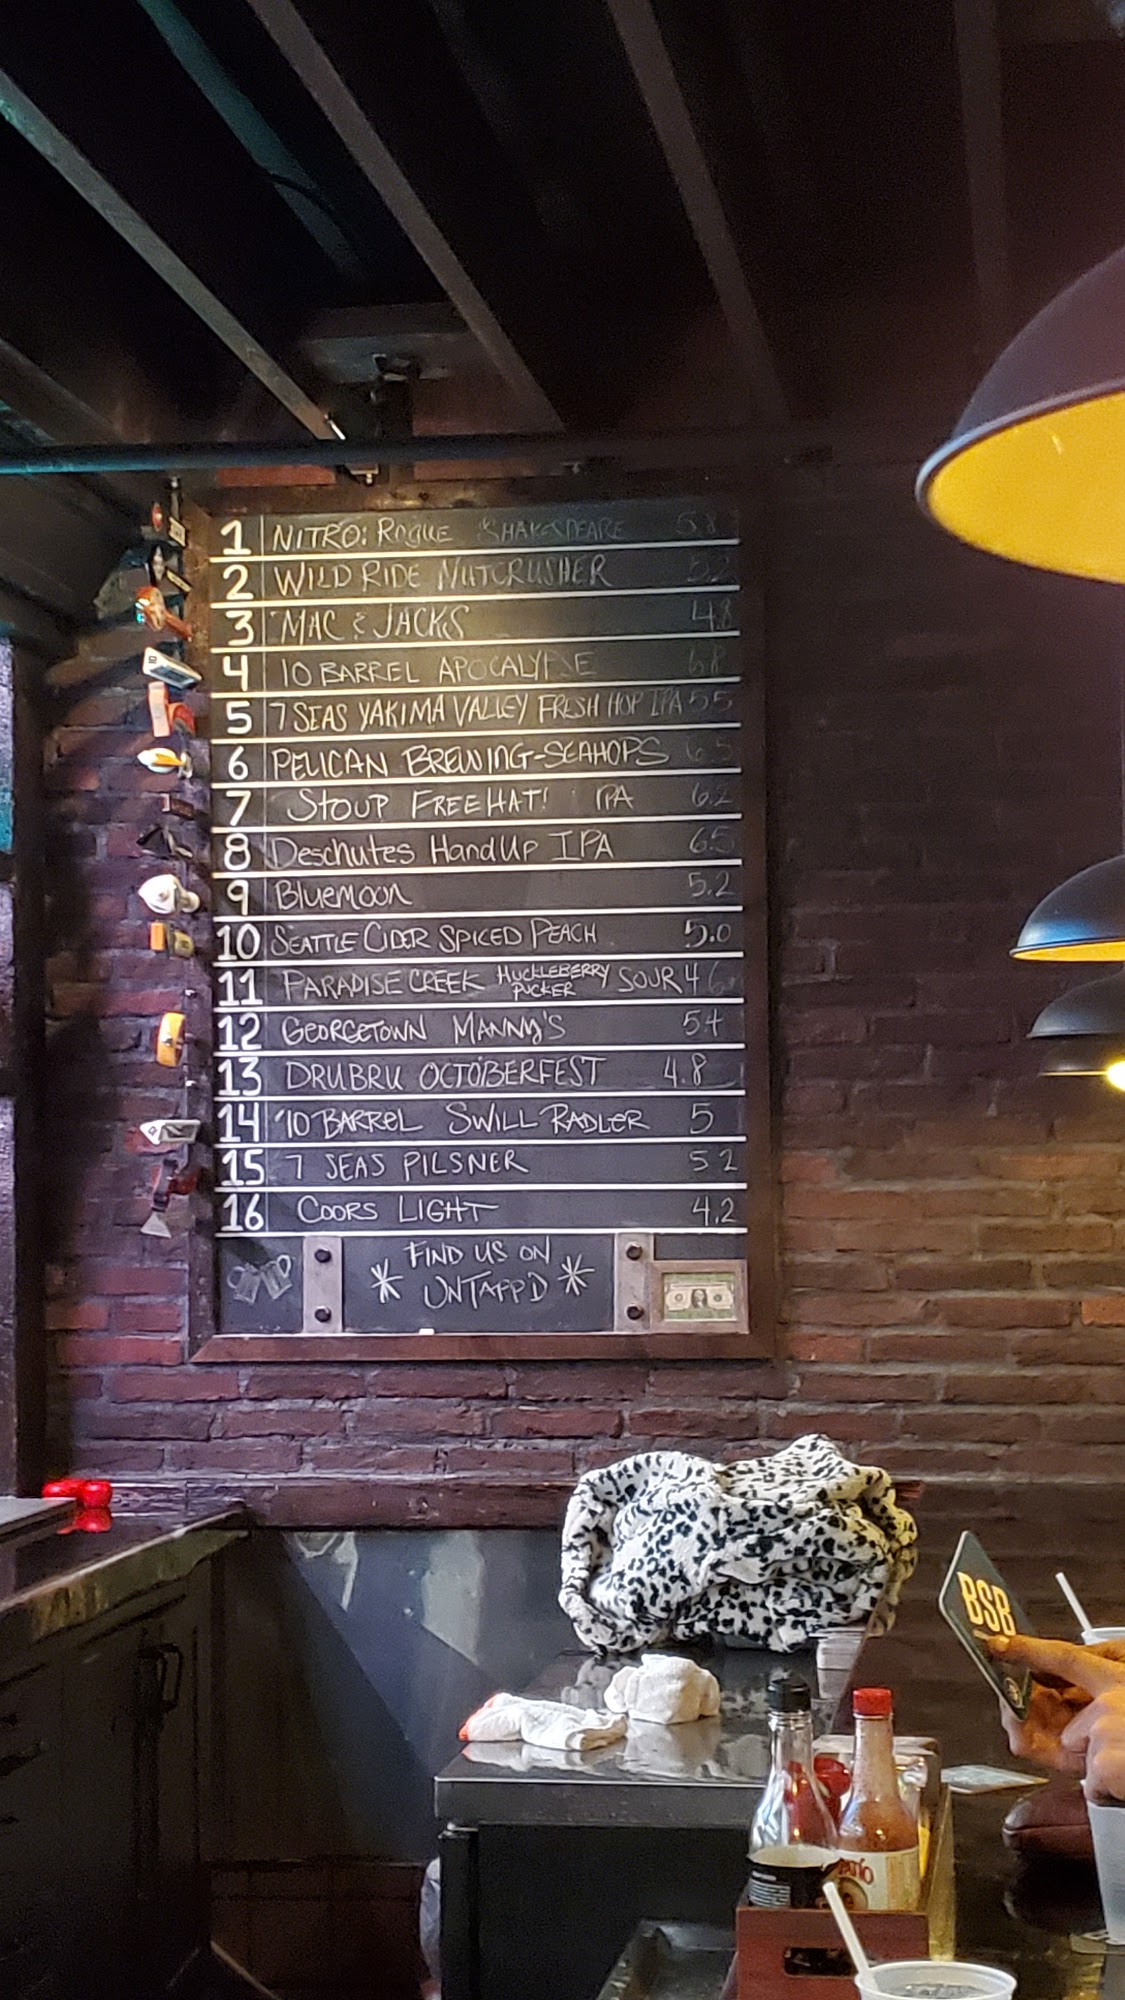 1 NITRO: ROGUE SHAKESPEARE 5.8
2 WILD RIDE NUTCRUSHER 5.2
3 MAC & JACKS 4.8
4 10 BARREL APOCALYPSE 6.8
5 7 SEAS YAKIMA VALLEY FRESH HOP IPA 5.5
6 PELICAN BREWING-SEAHOPS 6.5
7 STOUP FREEHAT! IPA 6.2
8 Deschutes HandUp IPA 6.5
9 Bluemoon 5.2
10 SEATTLE CIDER SPICED PEACH 5.0
11 PARADISE CREEK HUCKLEBERRY PUCKER SOUR 4.6
12 GEORGETOWN MANNY'S 5.4
13 DRUBRU OCTOBERFEST 4.8
14 10 BARREL SWILL RADLER 5
15 7 SEAS PILSNER 5.2
16 COORS LIGHT 4.2
* FIND US ON
UNTAPP'D *
BSB